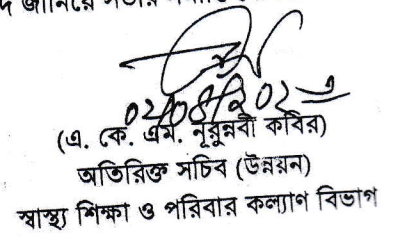 জানিয়ে সভার
(এ. কে. এম. নূরুন্নবী কবির)
অতিরিক্ত সচিব (উন্নয়ন)
স্বাস্থ্য শিক্ষা ও পরিবার কল্যাণ বিভাগ